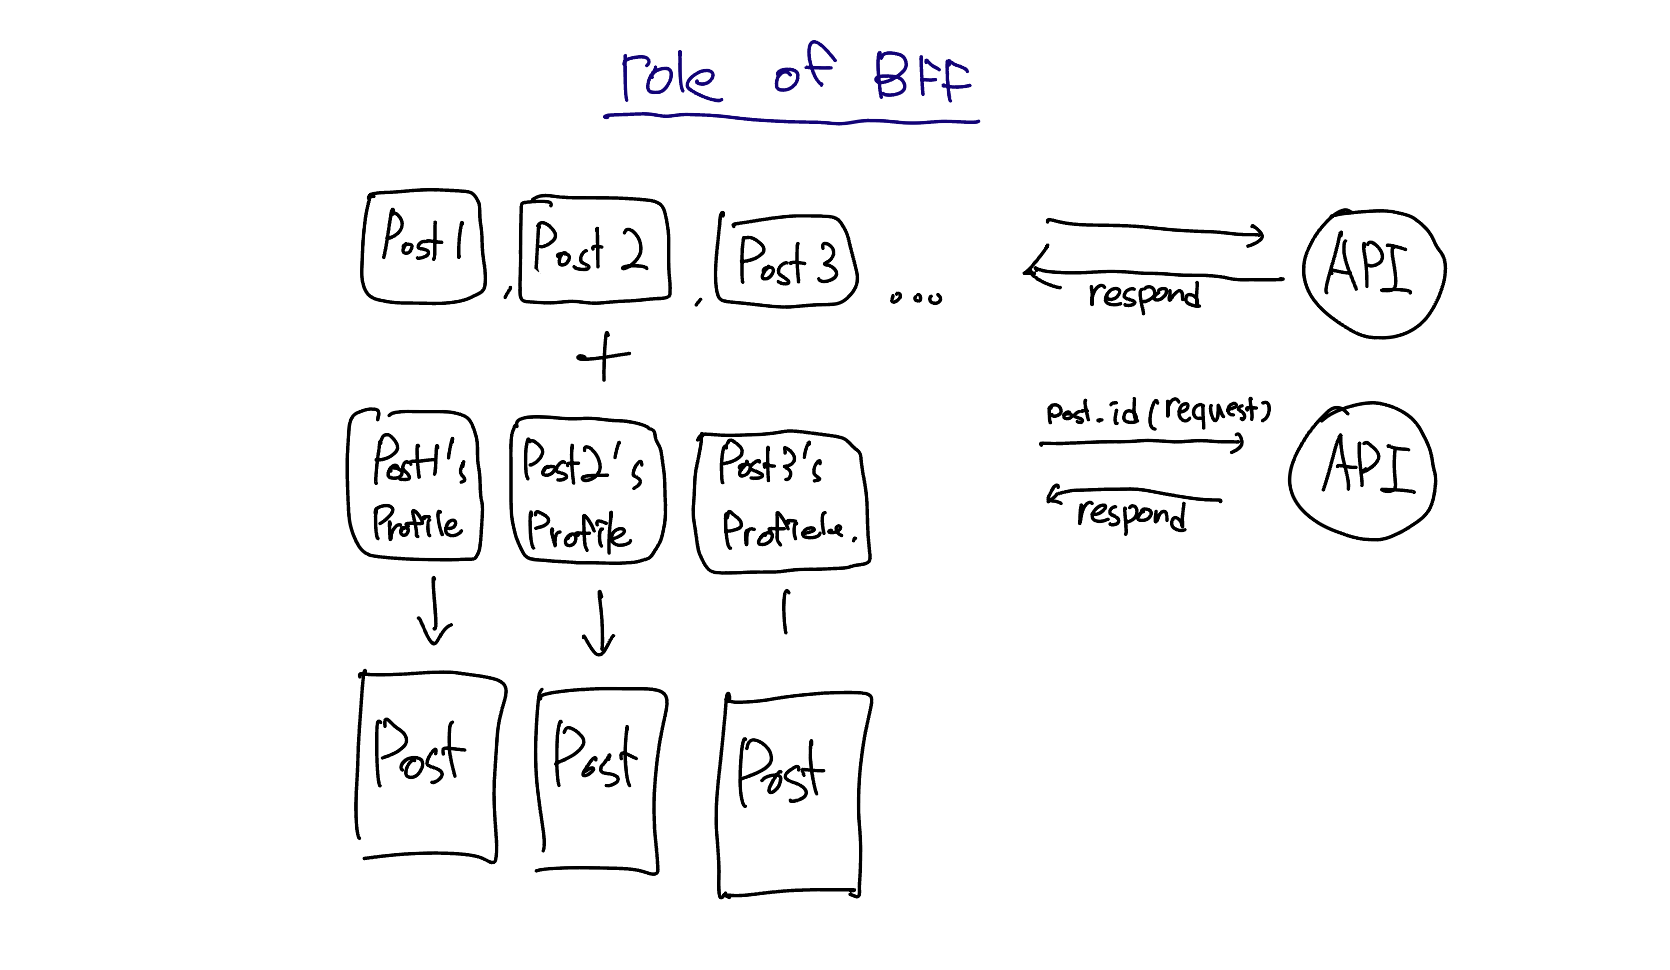 role of BFF
Post 1 , Post 2 , Post 3 ...
API
respond
+
Post1's
Profile
Post2's
Profile
Post3's
post.id (request)
API
respond
Post
Post
Post